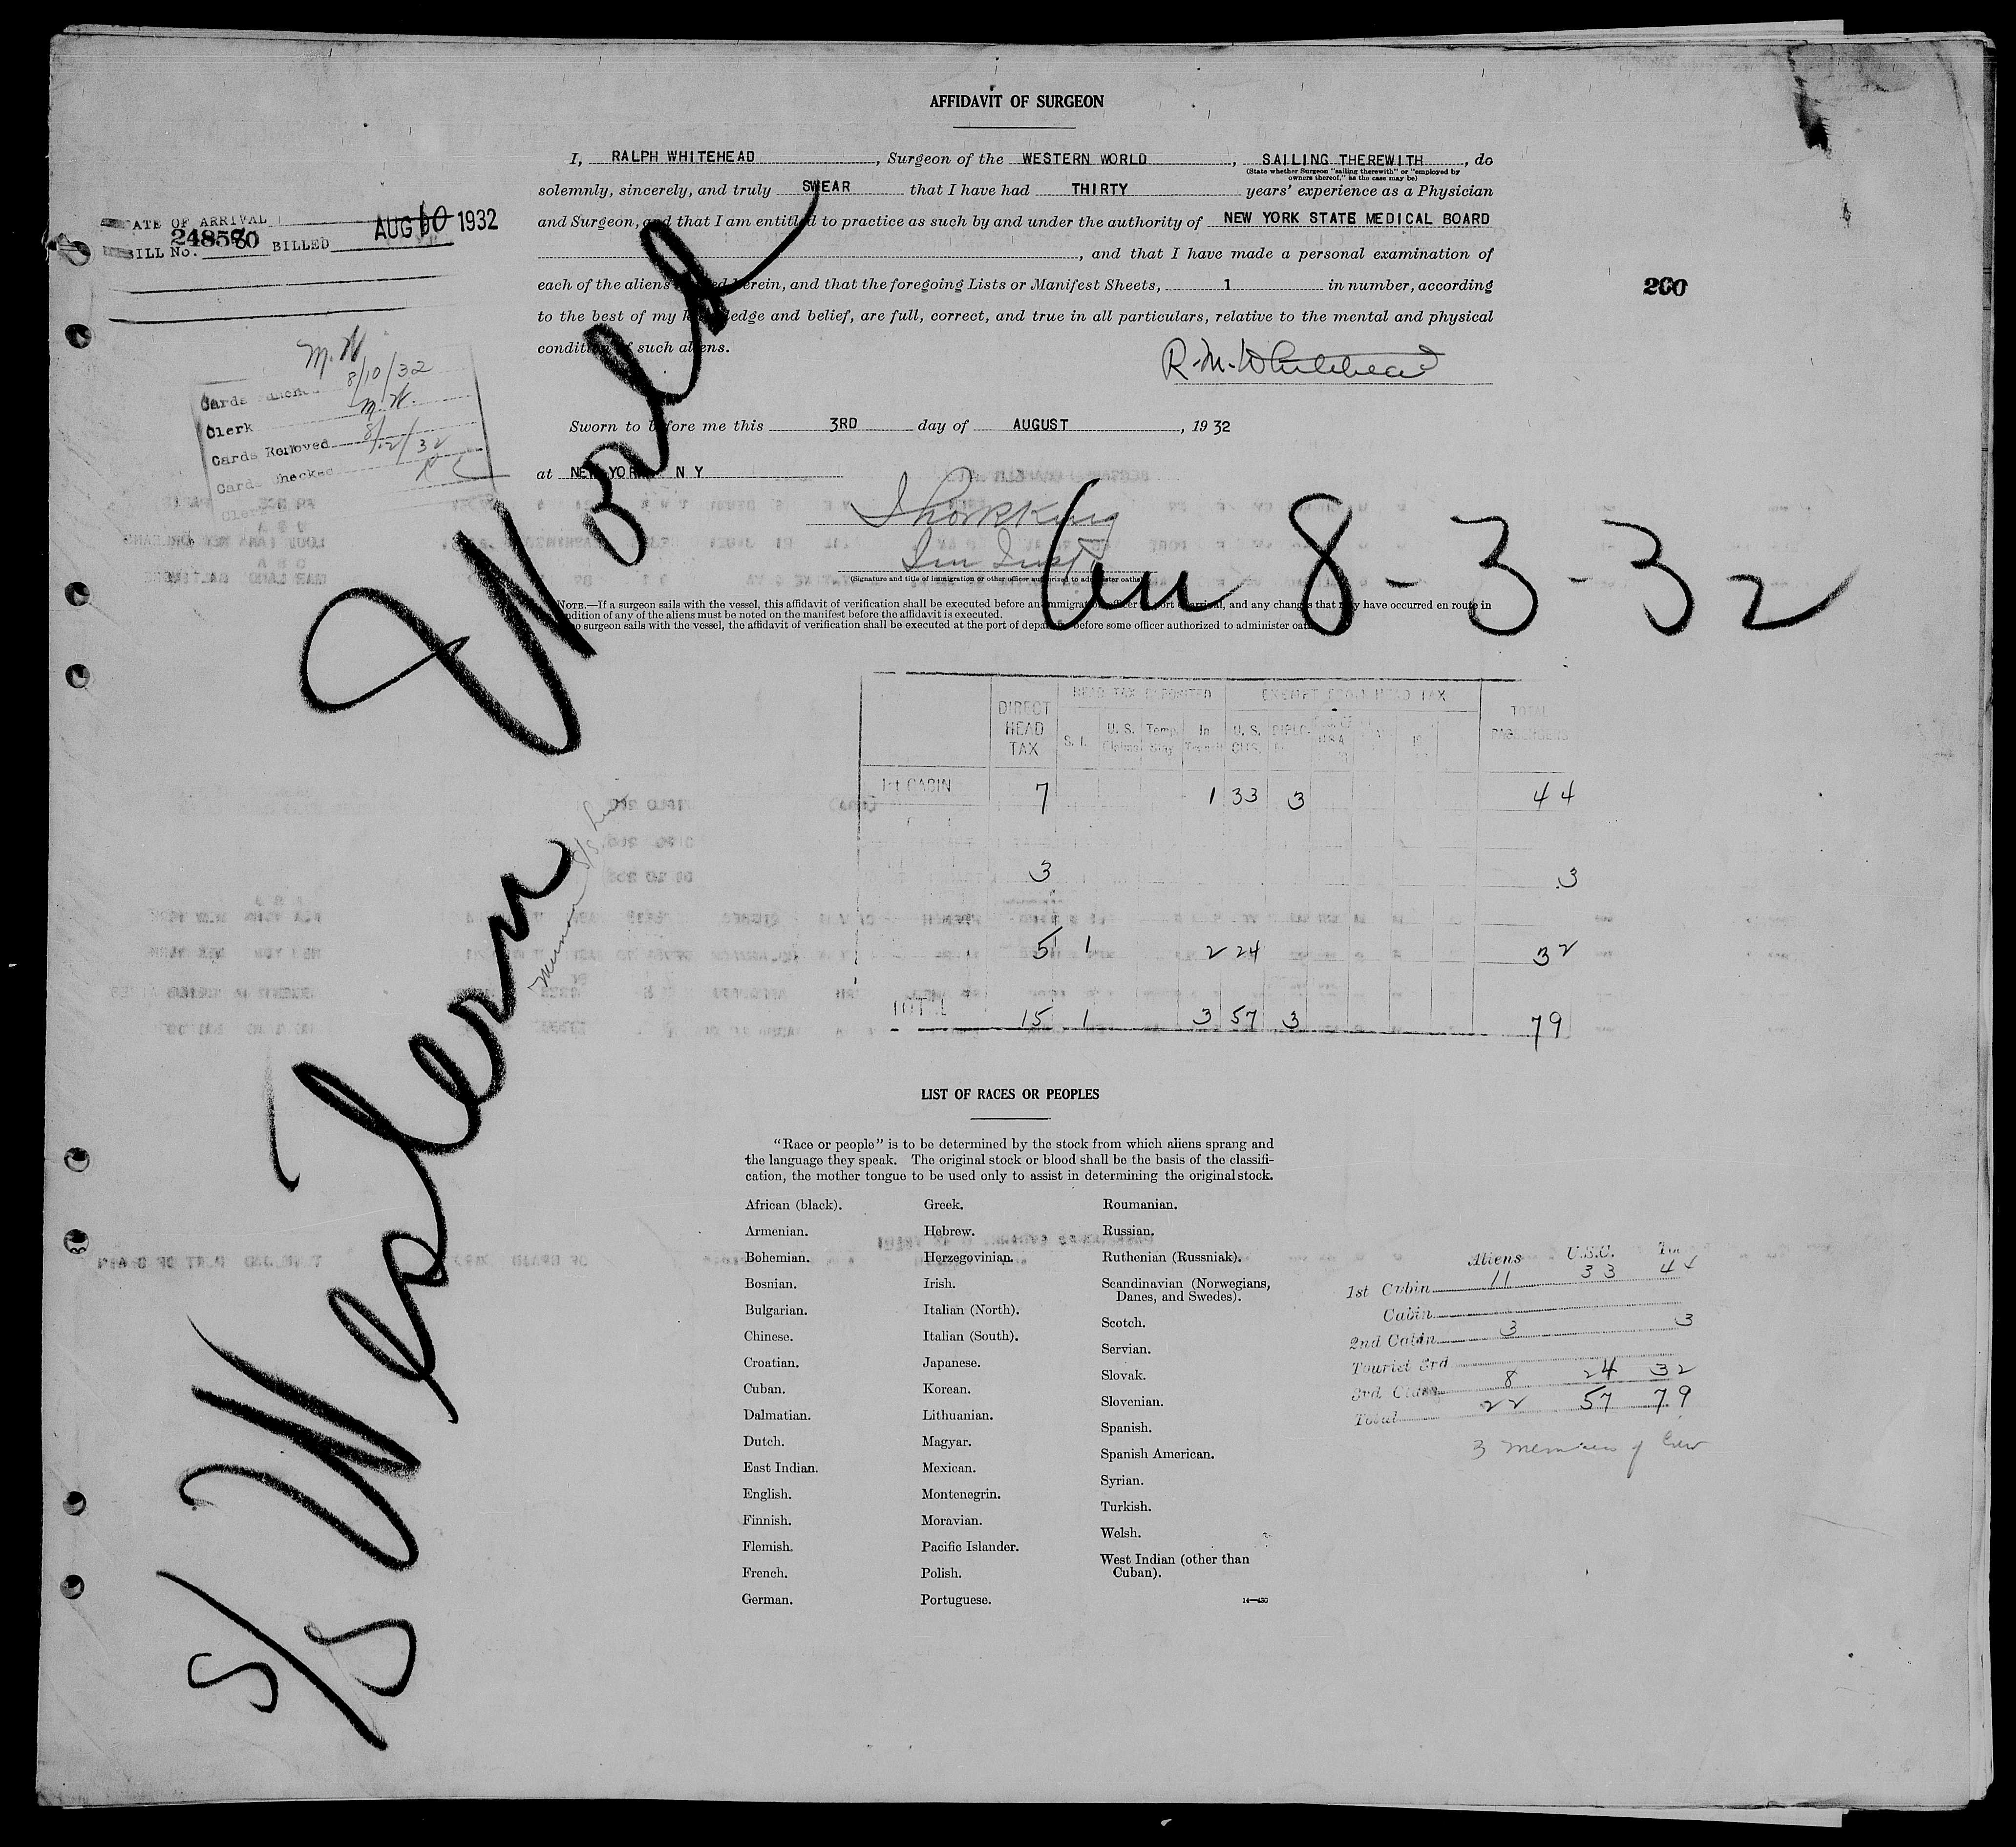 AFFIDAVIT OF SURGEON
I, RALPH WHITEHEAD, Surgeon of the WESTERN WORLD, SAILING THEREWITH, do
(State whether Surgeon "sailing therewith" or "employed by
owners thereof," as the case may be)
solemnly, sincerely, and truly SWEAR that I have had THIRTY years' experience as a Physician
and Surgeon, and that I am entitled to practice as such by and under the authority of NEW YORK STATE MEDICAL BOARD
, and that I have made a personal examination of
each of the aliens named herein, and that the foregoing Lists or Manifest Sheets, 1 in number, according
to the best of my knowledge and belief, are full, correct, and true in all particulars, relative to the mental and physical
condition of such aliens.
R. M. Whitehead
Sworn to before me this 3RD day of AUGUST, 1932
at NEW YORK N Y
(Signature and title of immigration or other officer authorized to administer oaths)
NOTE.—If a surgeon sails with the vessel, this affidavit of verification shall be executed before an immigration officer port arrival, and any changes that may have occurred en route in
condition of any of the aliens must be noted on the manifest before the affidavit is executed.
no surgeon sails with the vessel, the affidavit of verification shall be executed at the port of departure before some officer authorized to administer oaths
DATE OF ARRIVAL AUG 10 1932
BILL No. BILLED
M. W.
8/10/32
Clerk M. W.
Cards Removed 8/12/32
Cards Checked
Clerk
200
S/S Western World
8-3-32
DIRECT HEAD TAX
HEAD TAX DEPOSITED
EXEMPT FROM HEAD TAX
TOTAL PASSENGERS
S. I.
U. S. Claims
Temp. Stay
In Transit
U. S. CITS.
DIPLO.
1st CABIN 7 1 33 3 44
3 3
5 1 2 24 32
TOTAL 15 1 3 57 3 79
LIST OF RACES OR PEOPLES
"Race or people" is to be determined by the stock from which aliens sprang and
the language they speak. The original stock or blood shall be the basis of the classifi-
cation, the mother tongue to be used only to assist in determining the original stock.
African (black).
Armenian.
Bohemian.
Bosnian.
Bulgarian.
Chinese.
Croatian.
Cuban.
Dalmatian.
Dutch.
East Indian.
English.
Finnish.
Flemish.
French.
German.
Greek.
Hebrew.
Herzegovinian.
Irish.
Italian (North).
Italian (South).
Japanese.
Korean.
Lithuanian.
Magyar.
Mexican.
Montenegrin.
Moravian.
Pacific Islander.
Polish.
Portuguese.
Roumanian.
Russian.
Ruthenian (Russniak).
Scandinavian (Norwegians,
Danes, and Swedes).
Scotch.
Servian.
Slovak.
Slovenian.
Spanish.
Spanish American.
Syrian.
Turkish.
Welsh.
West Indian (other than
Cuban).
14—430
Aliens U.S.C.
1st Cabin 11 33 44
Cabin
2nd Cabin 3 3
Tourist 3rd
3rd Class 8 24 32
Total 22 57 79
3 members of Crew